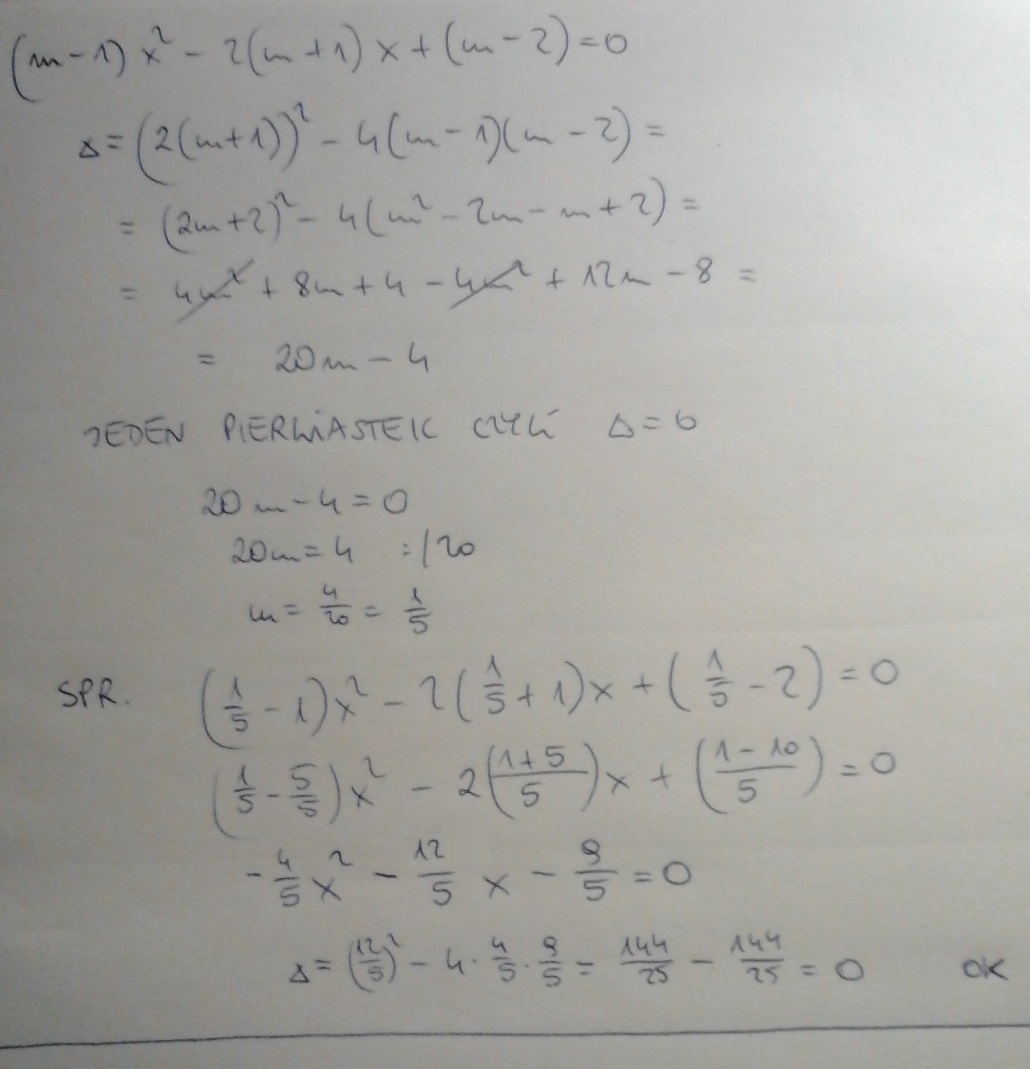 (m-1)x²-2(m+1)x+(m-2)=0
Δ=(2(m+1))²-4(m-1)(m-2)=
=(2m+2)²-4(m²-2m-m+2)=
=4m²+8m+4-4m²+12m-8=
= 20m-4
JEDEN PIERWIASTEK CZYLI Δ=0
20m-4=0
20m=4 :/20
m=4/20=1/5
SPR. (1/5-1)x²-2(1/5+1)x+(1/5-2)=0
(1/5-5/5)x²-2((1+5)/5)x+((1-10)/5)=0
-4/5x²-12/5x-9/5=0
Δ=(12/5)²-4·4/5·9/5=144/25-144/25=0 OK